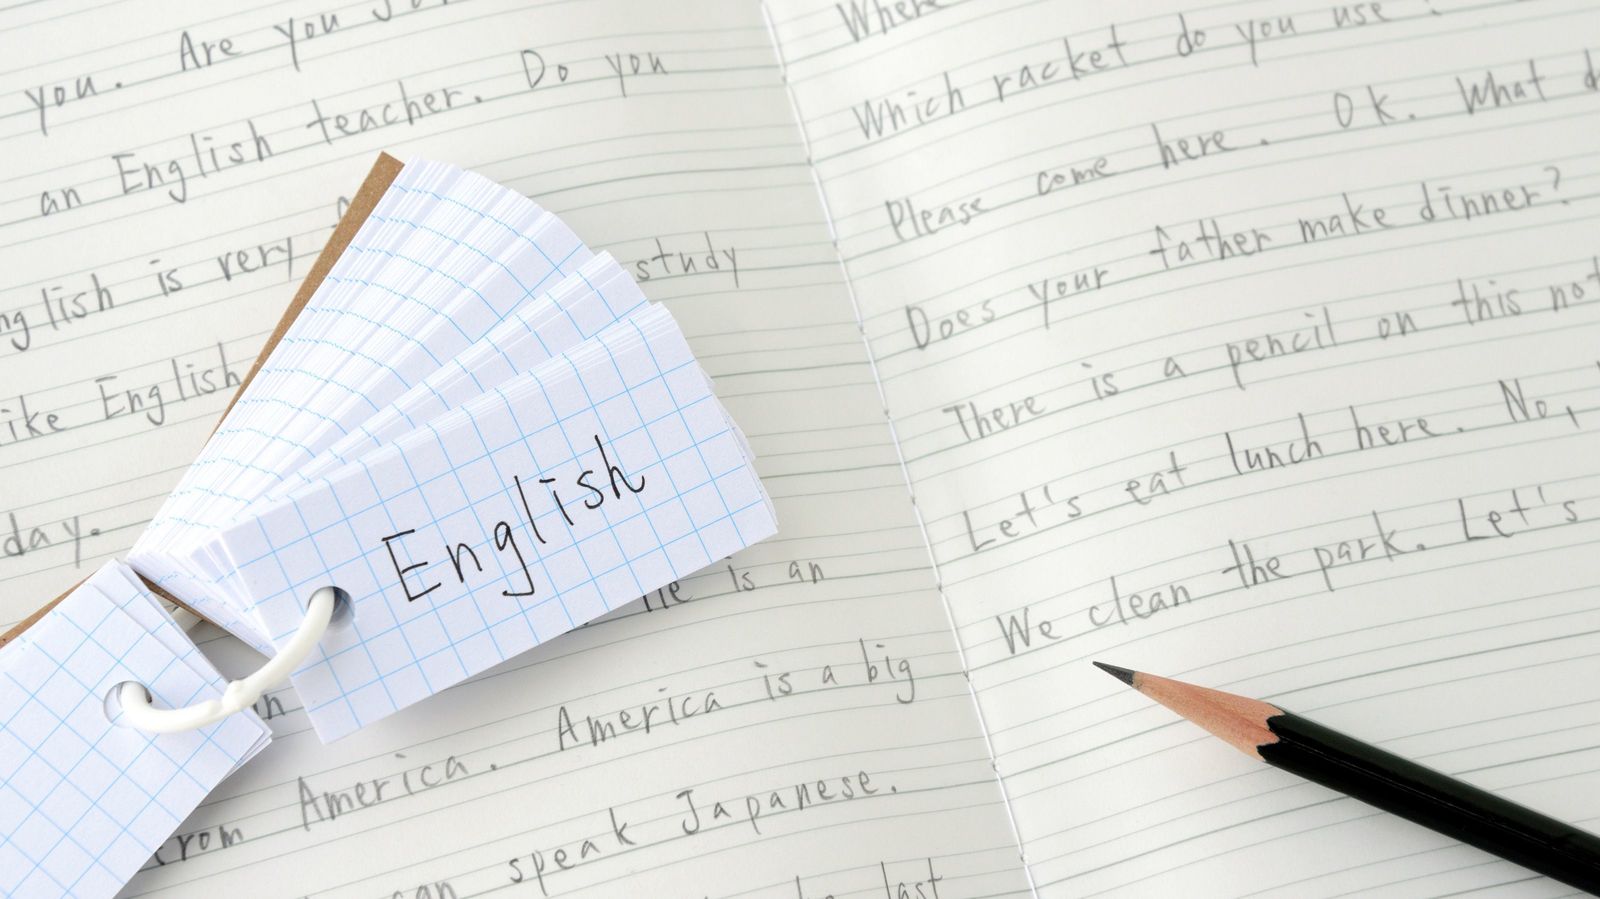 you. Are you
an English teacher. Do you
is very
study
English
day.
English
is an
America is a big
America.
speak Japanese.
last
Where
Which racket do you use
Please come here. Ok. What
Does your father make dinner?
There is a pencil on this
Let's eat lunch here. No,
We clean the park. Let's